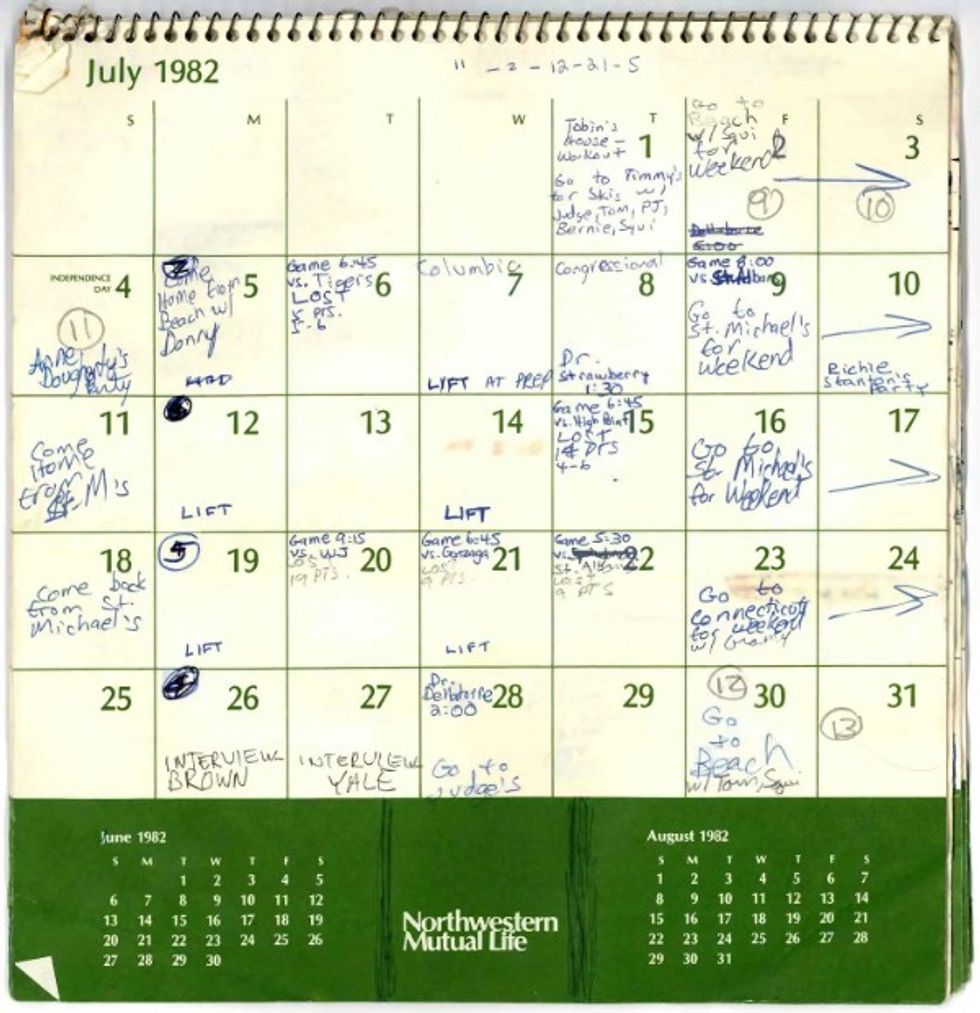 July 1982
11 - 2 - 12 - 21 - 5
S M T W T F S
Tobin's
House –
Workout
1
Go to Timmy's
for Skis w/
Judge, Tom, PJ,
Bernie, Squi
Go to
Beach
w/ Squi
for
Weekend
2
9
3
10
INDEPENDENCE
DAY 4
11
Anne
Dougherty's
Party
5
Come
Home from
Beach w/
Donny
Game 6:45
vs. Tigers
LOST
5 pts.
5-6
6
Columbia
7
LIFT AT PREP
Congressional
8
Dr.
Strawberry
1:30
Game 8:00
vs.
9
Go to
St. Michael's
for
Weekend
10
Richie
Stanton's
Party
11
Come
Home
from
St. M's
12
LIFT
13
14
LIFT
Game 6:45
vs. High Point
LOST
14 pts
4-6
15
16
Go to
St. Michael's
for Weekend
17
18
Come back
from St.
Michael's
5
19
LIFT
Game 9:15
vs. WJ
LOST
19 PTS.
20
Game 6:45
vs. Gonzaga
LOST
9 PTS.
21
LIFT
Game 5:30
vs.
St. Albans
LOST
9 PTS
22
23
Go to
Connecticut
for weekend
w/ Grany
24
25
26
INTERVIEW
BROWN
27
INTERVIEW
YALE
Dr.
2:00
28
Go to
Judge's
29
12
30
Go
to
Beach
w/ Tom, Squi
31
13
June 1982
S M T W T F S
1 2 3 4 5
6 7 8 9 10 11 12
13 14 15 16 17 18 19
20 21 22 23 24 25 26
27 28 29 30
Northwestern
Mutual Life
August 1982
S M T W T F S
1 2 3 4 5 6 7
8 9 10 11 12 13 14
15 16 17 18 19 20 21
22 23 24 25 26 27 28
29 30 31